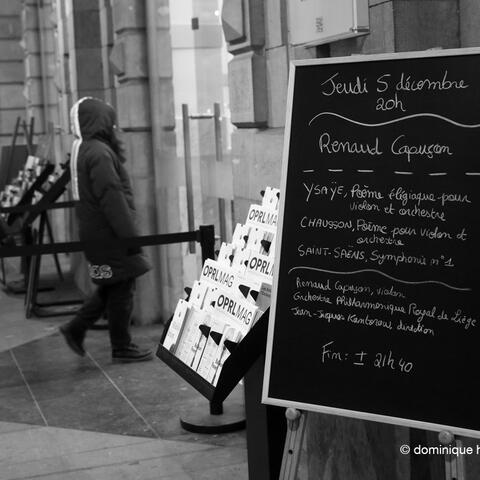 Jeudi 5 décembre
20h
Renaud Capuçon
YSAYE, Poème élégiaque pour
violon et orchestre
CHAUSSON, Poème pour violon et
orchestre
SAINT-SAËNS, Symphonie n°1
Renaud Capuçon, violon
Orchestre Philharmonique Royal de Liège
Jean-Jacques Kantorow direction
Fin: ± 21h40
OPRLMAG
OPRL
OPRLMAG
OPRLMAG
© dominique h